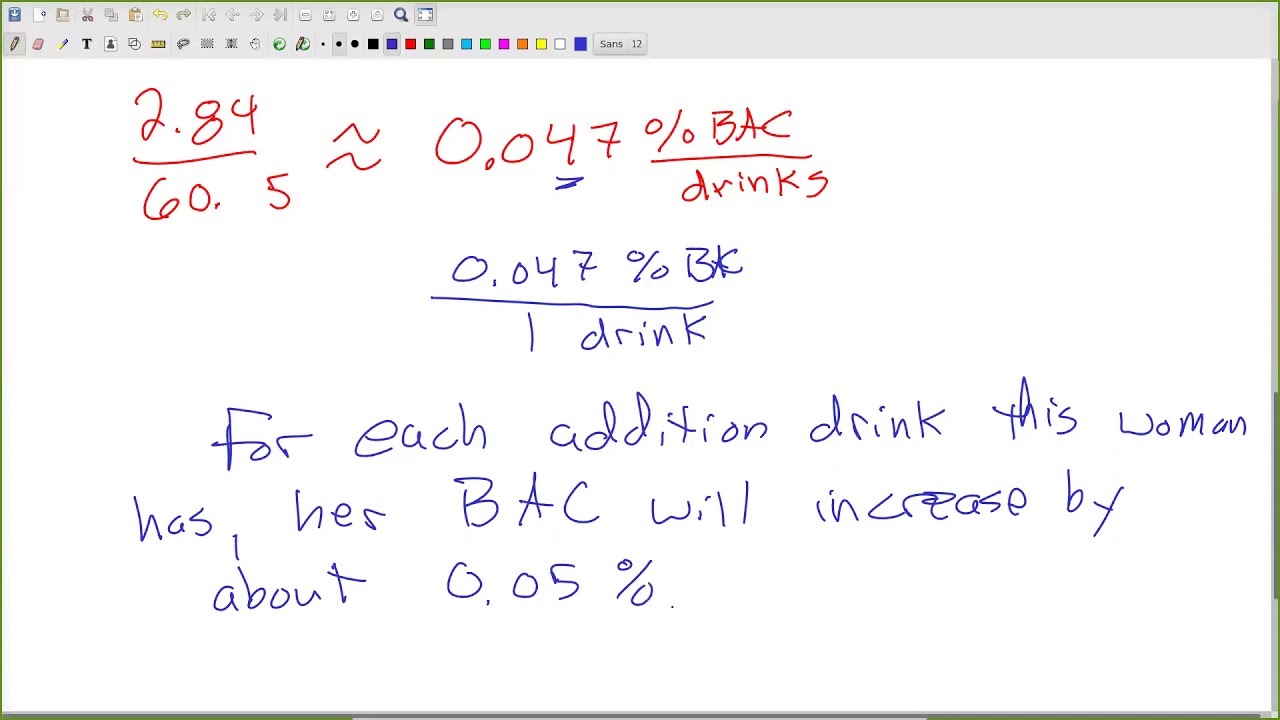 T
Sans 12
2.84
60. 5
≈ 0.047 % BAC
drinks
0.047 % BAC
1 drink
For each addition drink this woman
has, her BAC will increase by
about 0.05 %.